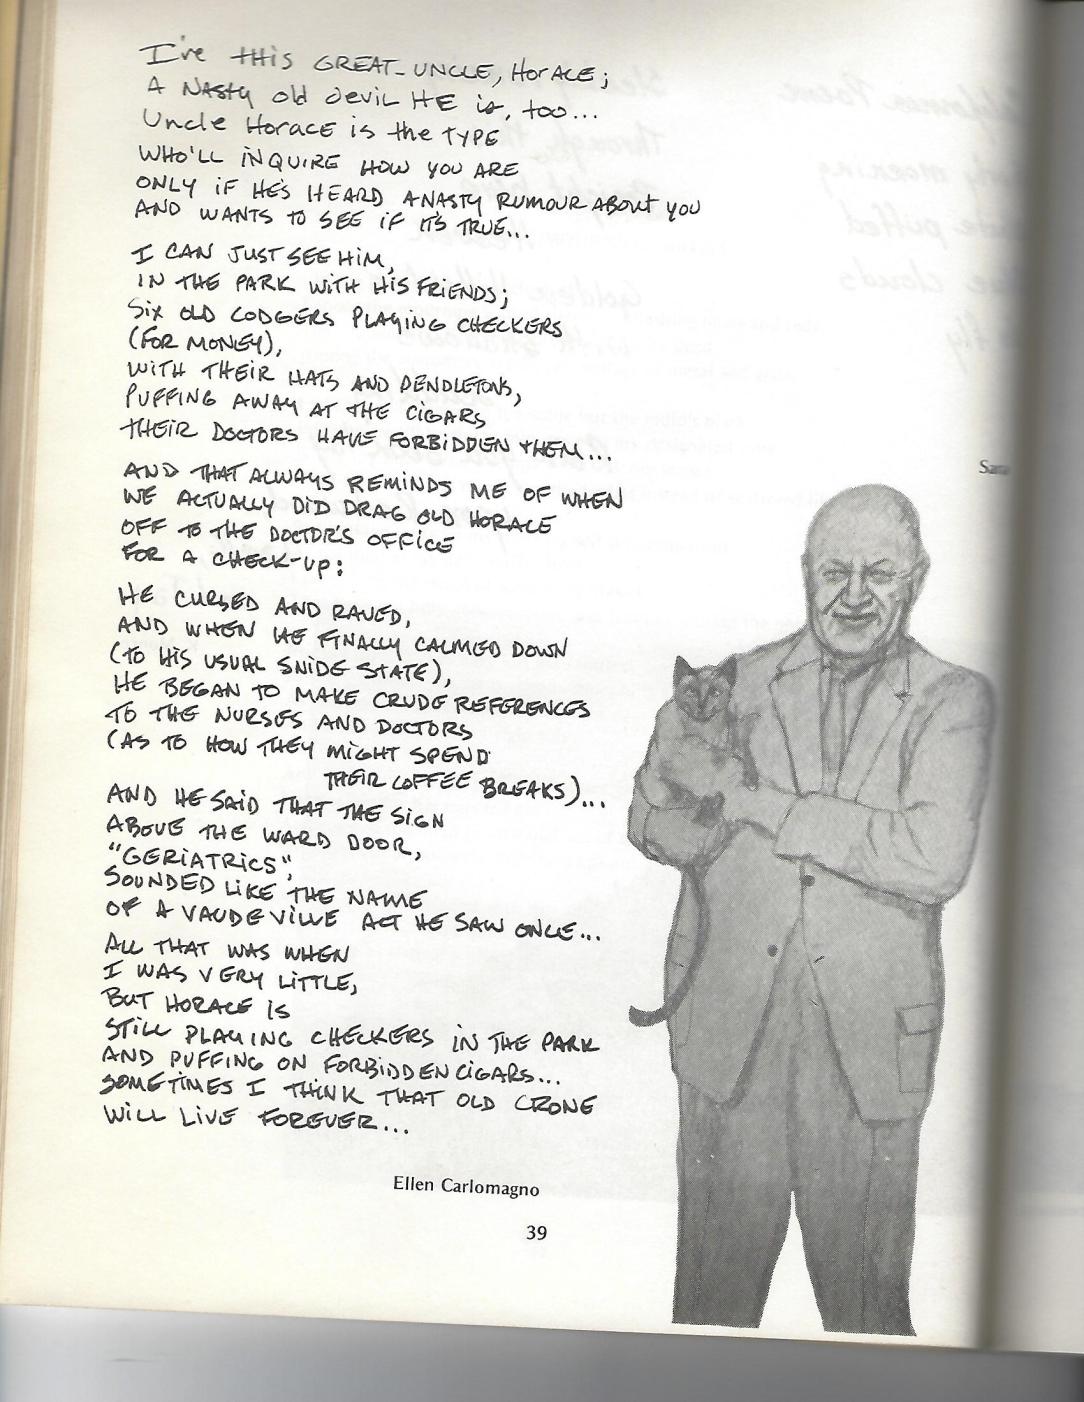 I've this GREAT-UNCLE, HORACE;
A NASTY old devil HE is, too...
Uncle Horace is the TYPE
WHO'LL INQUIRE HOW YOU ARE
ONLY IF HE'S HEARD A NASTY RUMOUR ABOUT YOU
AND WANTS TO SEE IF IT'S TRUE...
I CAN JUST SEE HIM,
IN THE PARK WITH HIS FRIENDS;
SIX OLD CODGERS PLAYING CHECKERS
(FOR MONEY),
WITH THEIR HATS AND PENDLETONS,
PUFFING AWAY AT THE CIGARS
THEIR DOCTORS HAVE FORBIDDEN THEM...
AND THAT ALWAYS REMINDS ME OF WHEN
WE ACTUALLY DID DRAG OLD HORACE
OFF TO THE DOCTOR'S OFFICE
FOR A CHECK-UP:
HE CURSED AND RAVED,
AND WHEN HE FINALLY CALMED DOWN
(TO HIS USUAL SNIDE STATE),
HE BEGAN TO MAKE CRUDE REFERENCES
TO THE NURSES AND DOCTORS
(AS TO HOW THEY MIGHT SPEND
THEIR COFFEE BREAKS)...
AND HE SAID THAT THE SIGN
ABOVE THE WARD DOOR,
"GERIATRICS",
SOUNDED LIKE THE NAME
OF A VAUDEVILLE ACT HE SAW ONCE...
ALL THAT WAS WHEN
I WAS VERY LITTLE,
BUT HORACE IS
STILL PLAYING CHECKERS IN THE PARK
AND PUFFING ON FORBIDDEN CIGARS...
SOMETIMES I THINK THAT OLD CRONE
WILL LIVE FOREVER...
Ellen Carlomagno
39